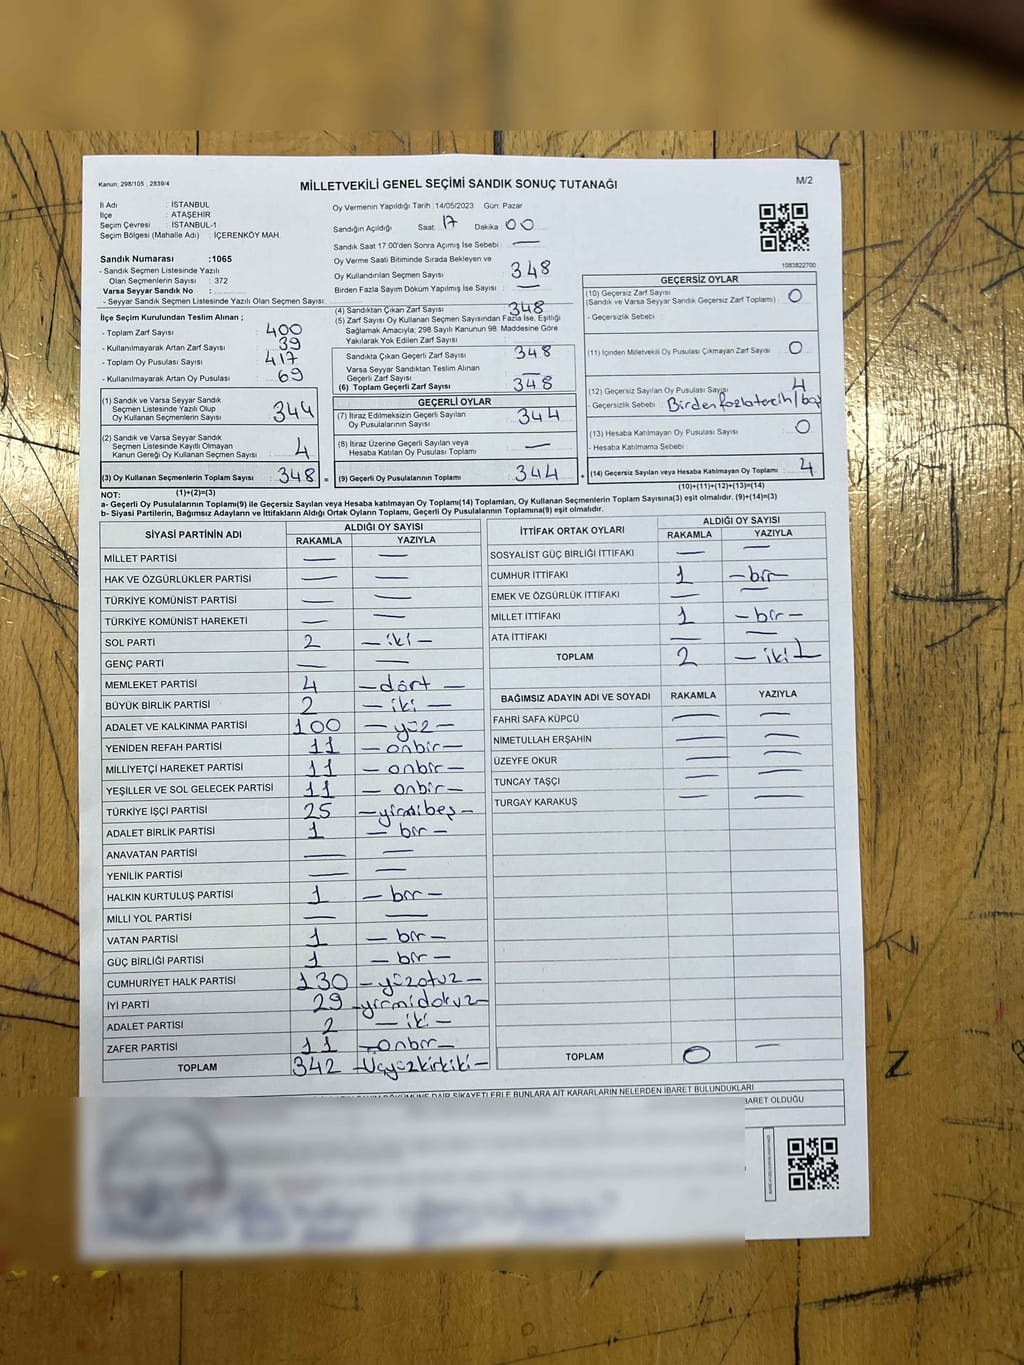 Kanun; 298/105 , 2839/4
MİLLETVEKİLİ GENEL SEÇİMİ SANDIK SONUÇ TUTANAĞI
M/2
İl Adı : İSTANBUL
İlçe : ATAŞEHİR
Seçim Çevresi : İSTANBUL-1
Seçim Bölgesi (Mahalle Adı) : İÇERENKÖY MAH.
Sandık Numarası :1065
- Sandık Seçmen Listesinde Yazılı
Olan Seçmenlerin Sayısı : 372
Varsa Seyyar Sandık No :
- Seyyar Sandık Seçmen Listesinde Yazılı Olan Seçmen Sayısı:
Oy Vermenin Yapıldığı Tarih :14/05/2023 Gün: Pazar
Sandığın Açıldığı Saat: 17 Dakika 00
Sandık Saat 17:00'den Sonra Açımış İse Sebebi : —
Oy Verme Saati Bitiminde Sırada Bekleyen ve
Oy Kullandırılan Seçmen Sayısı : 348
Birden Fazla Sayım Döküm Yapılmış İse Sayısı : —
1083822700
İlçe Seçim Kurulundan Teslim Alınan ;
- Toplam Zarf Sayısı : 400
- Kullanılmayarak Artan Zarf Sayısı : 39
- Toplam Oy Pusulası Sayısı : 417
- Kullanılmayarak Artan Oy Pusulası : 69
(1) Sandık ve Varsa Seyyar Sandık
Seçmen Listesinde Yazılı Olup
Oy Kullanan Seçmenlerin Sayısı : 344
(2) Sandık ve Varsa Seyyar Sandık
Seçmen Listesinde Kayıtlı Olmayan
Kanun Gereği Oy Kullanan Seçmen Sayısı : 4
(3) Oy Kullanan Seçmenlerin Toplam Sayısı : 348 =
(4) Sandıktan Çıkan Zarf Sayısı : 348
(5) Zarf Sayısı Oy Kullanan Seçmen Sayısından Fazla İse, Eşitliği
Sağlamak Amacıyla; 298 Sayılı Kanunun 98. Maddesine Göre
Yakılarak Yok Edilen Zarf Sayısı :
Sandıkta Çıkan Geçerli Zarf Sayısı : 348
Varsa Seyyar Sandıktan Teslim Alınan
Geçerli Zarf Sayısı : —
(6) Toplam Geçerli Zarf Sayısı : 348
GEÇERLİ OYLAR
(7) İtiraz Edilmeksizin Geçerli Sayılan
Oy Pusulalarının Sayısı : 344
(8) İtiraz Üzerine Geçerli Sayılan veya
Hesaba Katılan Oy Pusulası Toplamı : —
(9) Geçerli Oy Pusulalarının Toplamı : 344 +
GEÇERSİZ OYLAR
(10) Geçersiz Zarf Sayısı :
(Sandık ve Varsa Seyyar Sandık Geçersiz Zarf Toplamı) : 0
- Geçersizlik Sebebi :
(11) İçinden Milletvekili Oy Pusulası Çıkmayan Zarf Sayısı : 0
(12) Geçersiz Sayılan Oy Pusulası Sayısı : 4
- Geçersizlik Sebebi : Birden fazla tercih/
(13) Hesaba Katılmayan Oy Pusulası Sayısı : 0
- Hesaba Katılmama Sebebi :
(14) Geçersiz Sayılan veya Hesaba Katılmayan Oy Toplamı : 4
NOT: (1)+(2)=(3)
(10)+(11)+(12)+(13)=(14)
a- Geçerli Oy Pusulalarının Toplamı(9) ile Geçersiz Sayılan veya Hesaba katılmayan Oy Toplamı(14) Toplamları, Oy Kullanan Seçmenlerin Toplam Sayısına(3) eşit olmalıdır. (9)+(14)=(3)
b- Siyasi Partilerin, Bağımsız Adayların ve İttifakların Aldığı Ortak Oyların Toplamı, Geçerli Oy Pusulalarının Toplamına(9) eşit olmalıdır.
SİYASİ PARTİNİN ADI ALDIĞI OY SAYISI
RAKAMLA YAZIYLA
MİLLET PARTİSİ — —
HAK VE ÖZGÜRLÜKLER PARTİSİ — —
TÜRKİYE KOMÜNİST PARTİSİ — —
TÜRKİYE KOMÜNİST HAREKETİ — —
SOL PARTİ 2 — iki —
GENÇ PARTİ — —
MEMLEKET PARTİSİ 4 — dört —
BÜYÜK BİRLİK PARTİSİ 2 — iki —
ADALET VE KALKINMA PARTİSİ 100 — yüz —
YENİDEN REFAH PARTİSİ 11 — onbir —
MİLLİYETÇİ HAREKET PARTİSİ 11 — onbir —
YEŞİLLER VE SOL GELECEK PARTİSİ 11 — onbir —
TÜRKİYE İŞÇİ PARTİSİ 25 — yirmibeş —
ADALET BİRLİK PARTİSİ 1 — bir —
ANAVATAN PARTİSİ — —
YENİLİK PARTİSİ — —
HALKIN KURTULUŞ PARTİSİ 1 — bir —
MİLLİ YOL PARTİSİ — —
VATAN PARTİSİ 1 — bir —
GÜÇ BİRLİĞİ PARTİSİ 1 — bir —
CUMHURİYET HALK PARTİSİ 130 — yüzotuz —
İYİ PARTİ 29 — yirmidokuz —
ADALET PARTİSİ 2 — iki —
ZAFER PARTİSİ 11 — onbir —
TOPLAM 342 — Üçyüzkırkiki —
İTTİFAK ORTAK OYLARI ALDIĞI OY SAYISI
RAKAMLA YAZIYLA
SOSYALİST GÜÇ BİRLİĞİ İTTİFAKI — —
CUMHUR İTTİFAKI 1 — bir —
EMEK VE ÖZGÜRLÜK İTTİFAKI — —
MİLLET İTTİFAKI 1 — bir —
ATA İTTİFAKI — —
TOPLAM 2 — iki —
BAĞIMSIZ ADAYIN ADI VE SOYADI RAKAMLA YAZIYLA
FAHRİ SAFA KÜPCÜ — —
NİMETULLAH ERŞAHİN — —
ÜZEYFE OKUR — —
TUNCAY TAŞÇI — —
TURGAY KARAKUŞ — —
TOPLAM 0 —
DÖKÜMÜNE DAİR ŞİKAYETLERLE BUNLARA AİT KARARLARIN NELERDEN İBARET BULUNDUKLARI
İBARET OLDUĞU